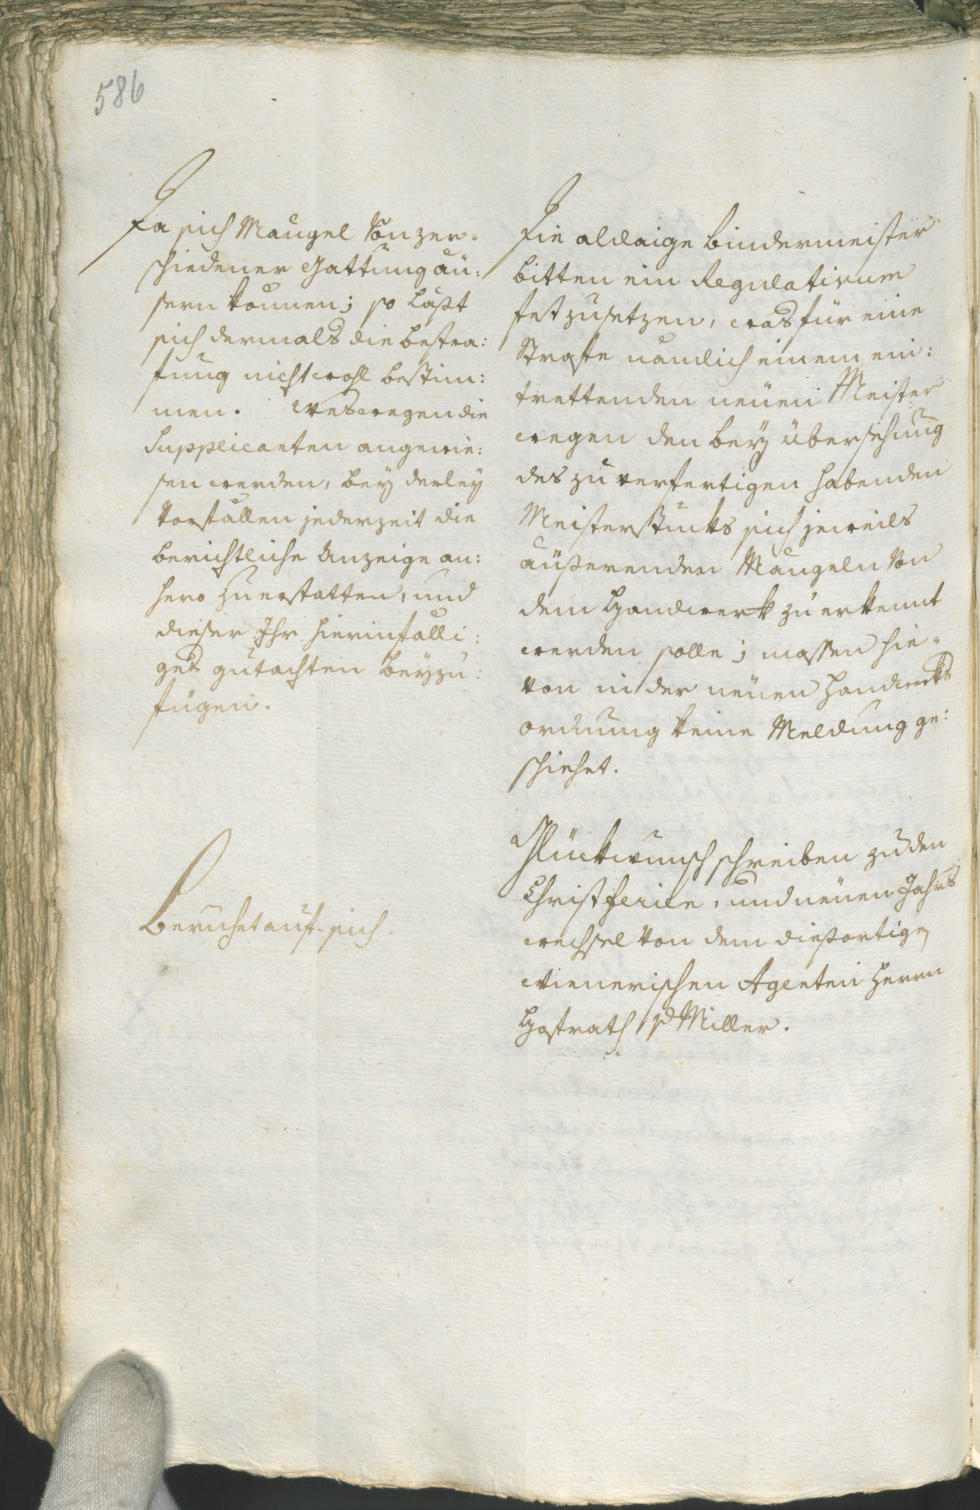 586
Da sich Mängel von zer=
schiedener Gattung äu:
sern können; so läßt
sich dermals die bestra:
fung nicht wohl bestim:
men. Weswegen die
Supplicanten angewie:
sen werden, bey derley
vorfällen jederzeit die
berichtliche Anzeige an:
hero zu erstatten, und
dieser Ihr hierinfälli:
ges gutachten beyzu:
fügen.
Beruhet auf sich.
Die aldaige bindermeister
bitten ein Regulativum
fest zusetzen, was für eine
Strafe nämlich einem ein:
trettenden neuen Meister
wegen den bey übersehung
des zu verfertigen habenden
Meisterstücks sich jeweils
äußerenden Mängeln von
dem Handwerk zu erkennt
werden solle; massen hie=
von in der neuen Handwerks
ordnung keine Meldung ge:
schiehet.
Glückwunsch schreiben zu den
Christferien, und neuen Jahrs
wechsel von dem diesortigen
wienerischen Agenten Herrn
Hofrath v Miller.